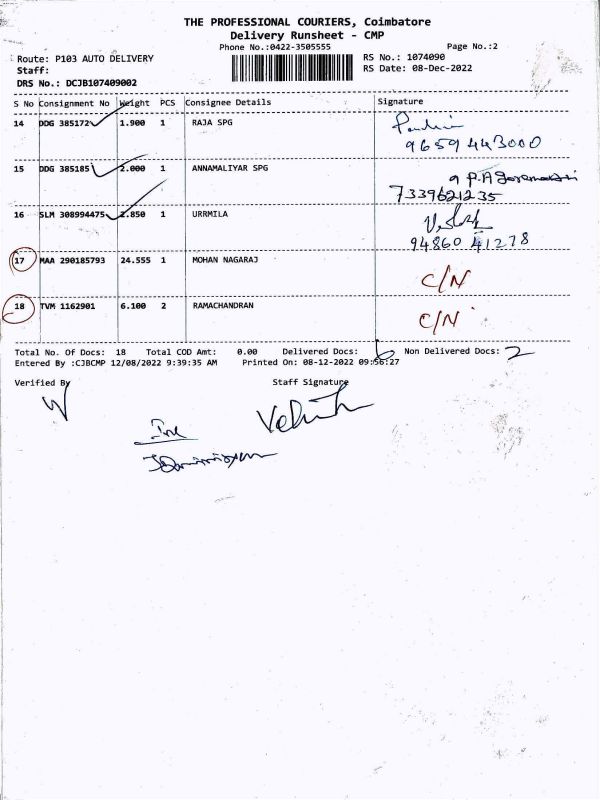 THE PROFESSIONAL COURIERS, Coimbatore
Delivery Runsheet - CMP
Phone No.:0422-3505555
Page No.:2
Route: P103 AUTO DELIVERY
RS No.: 1074090
Staff:
RS Date: 08-Dec-2022
DRS No.: DCJB107409002
S No Consignment No Weight PCS Consignee Details Signature
14 DDG 385172 1.900 1 RAJA SPG
9659443000
15 DDG 385185 2.000 1 ANNAMALIYAR SPG
7339621235
16 SLM 308994475 2.850 1 URRMILA
94860 41278
17 MAA 290185793 24.555 1 MOHAN NAGARAJ C/N
18 TVM 1162901 6.100 2 RAMACHANDRAN C/N
Total No. Of Docs: 18 Total COD Amt: 0.00 Delivered Docs: 6 Non Delivered Docs: 2
Entered By :CJBCMP 12/08/2022 9:39:35 AM Printed On: 08-12-2022 09:56:27
Verified By Staff Signature